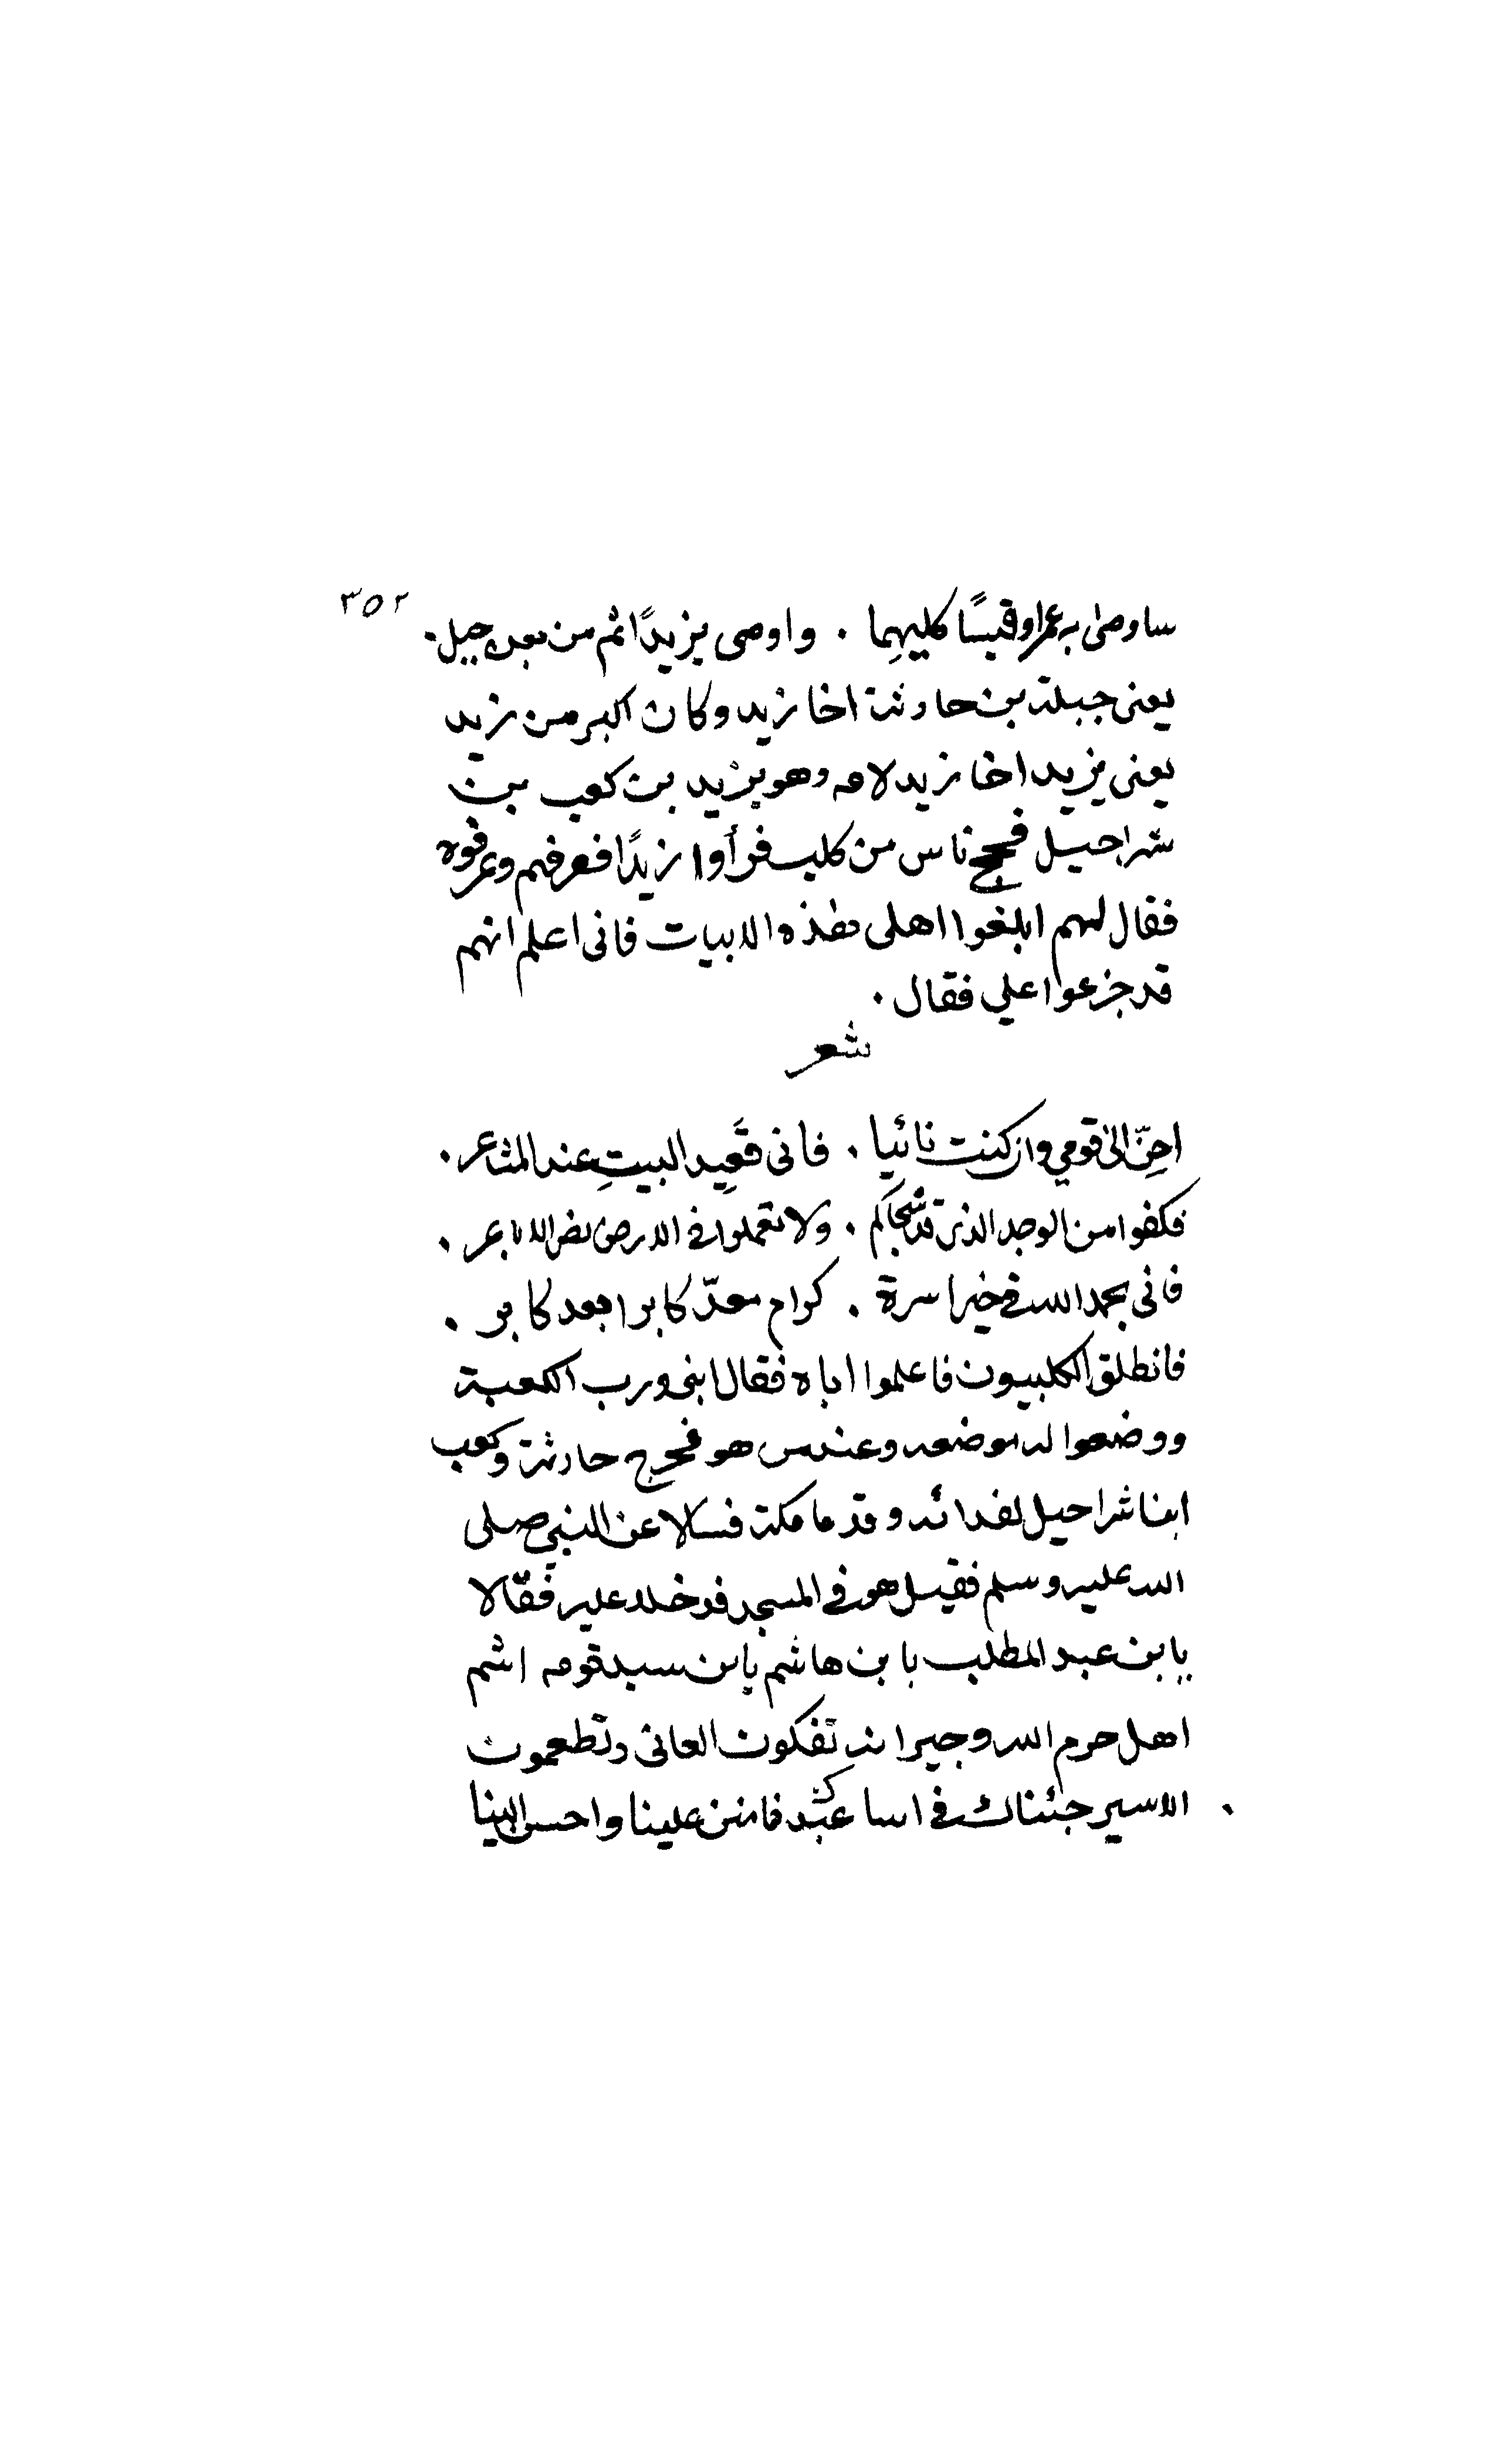 ٣٥٢
ساوصى به عمرا وقيسًا كليهِما . واوصى يزيدًا ثم من بعد جبل .
يعنى جبلة بن حارثة اخا زيد وكان اكبر من زيد
يعنى يزيد اخا زيد لامه وهو يزيد بن كعب بن
شراحيل فحج ناس من كلب فرأوا زيدًا فعرفهم وعرفوه
فقال لهم ابلغوا اهلى هذه الابيات فانى اعلم انهم
قد جزعوا علي فقال .
شعر
احِنّ الى قومي وان كنت نائيا . فانى قَعِيد البيتِ عند المشاعر .
فكفوا من الوجد الذى قد شجاكم . ولا تعملوا فى الارض نص الاباعر .
فانى بحمد الله فى خير اسرة . كرام معدّ كابرا بعد كابر .
فانطلق الكلبيون فاعلموا اباه فقال ابنى ورب الكعبة
ووضعوا له موضعه وعند من هو فخرج حارثة وكعب
ابنا شراحيل لفدائه وقدما مكة فسالا عن النبي صلى
الله عليه وسلم فقيل هو فى المسجد فدخلا عليه فقالا
يا بن عبد المطلب يا بن هاشم يا بن سيد قومه انتم
اهل حرم الله وجيرانه تفكون العانى وتطعمون
الاسير جئناك فى ابننا عندك فامنن علينا واحسن الينا